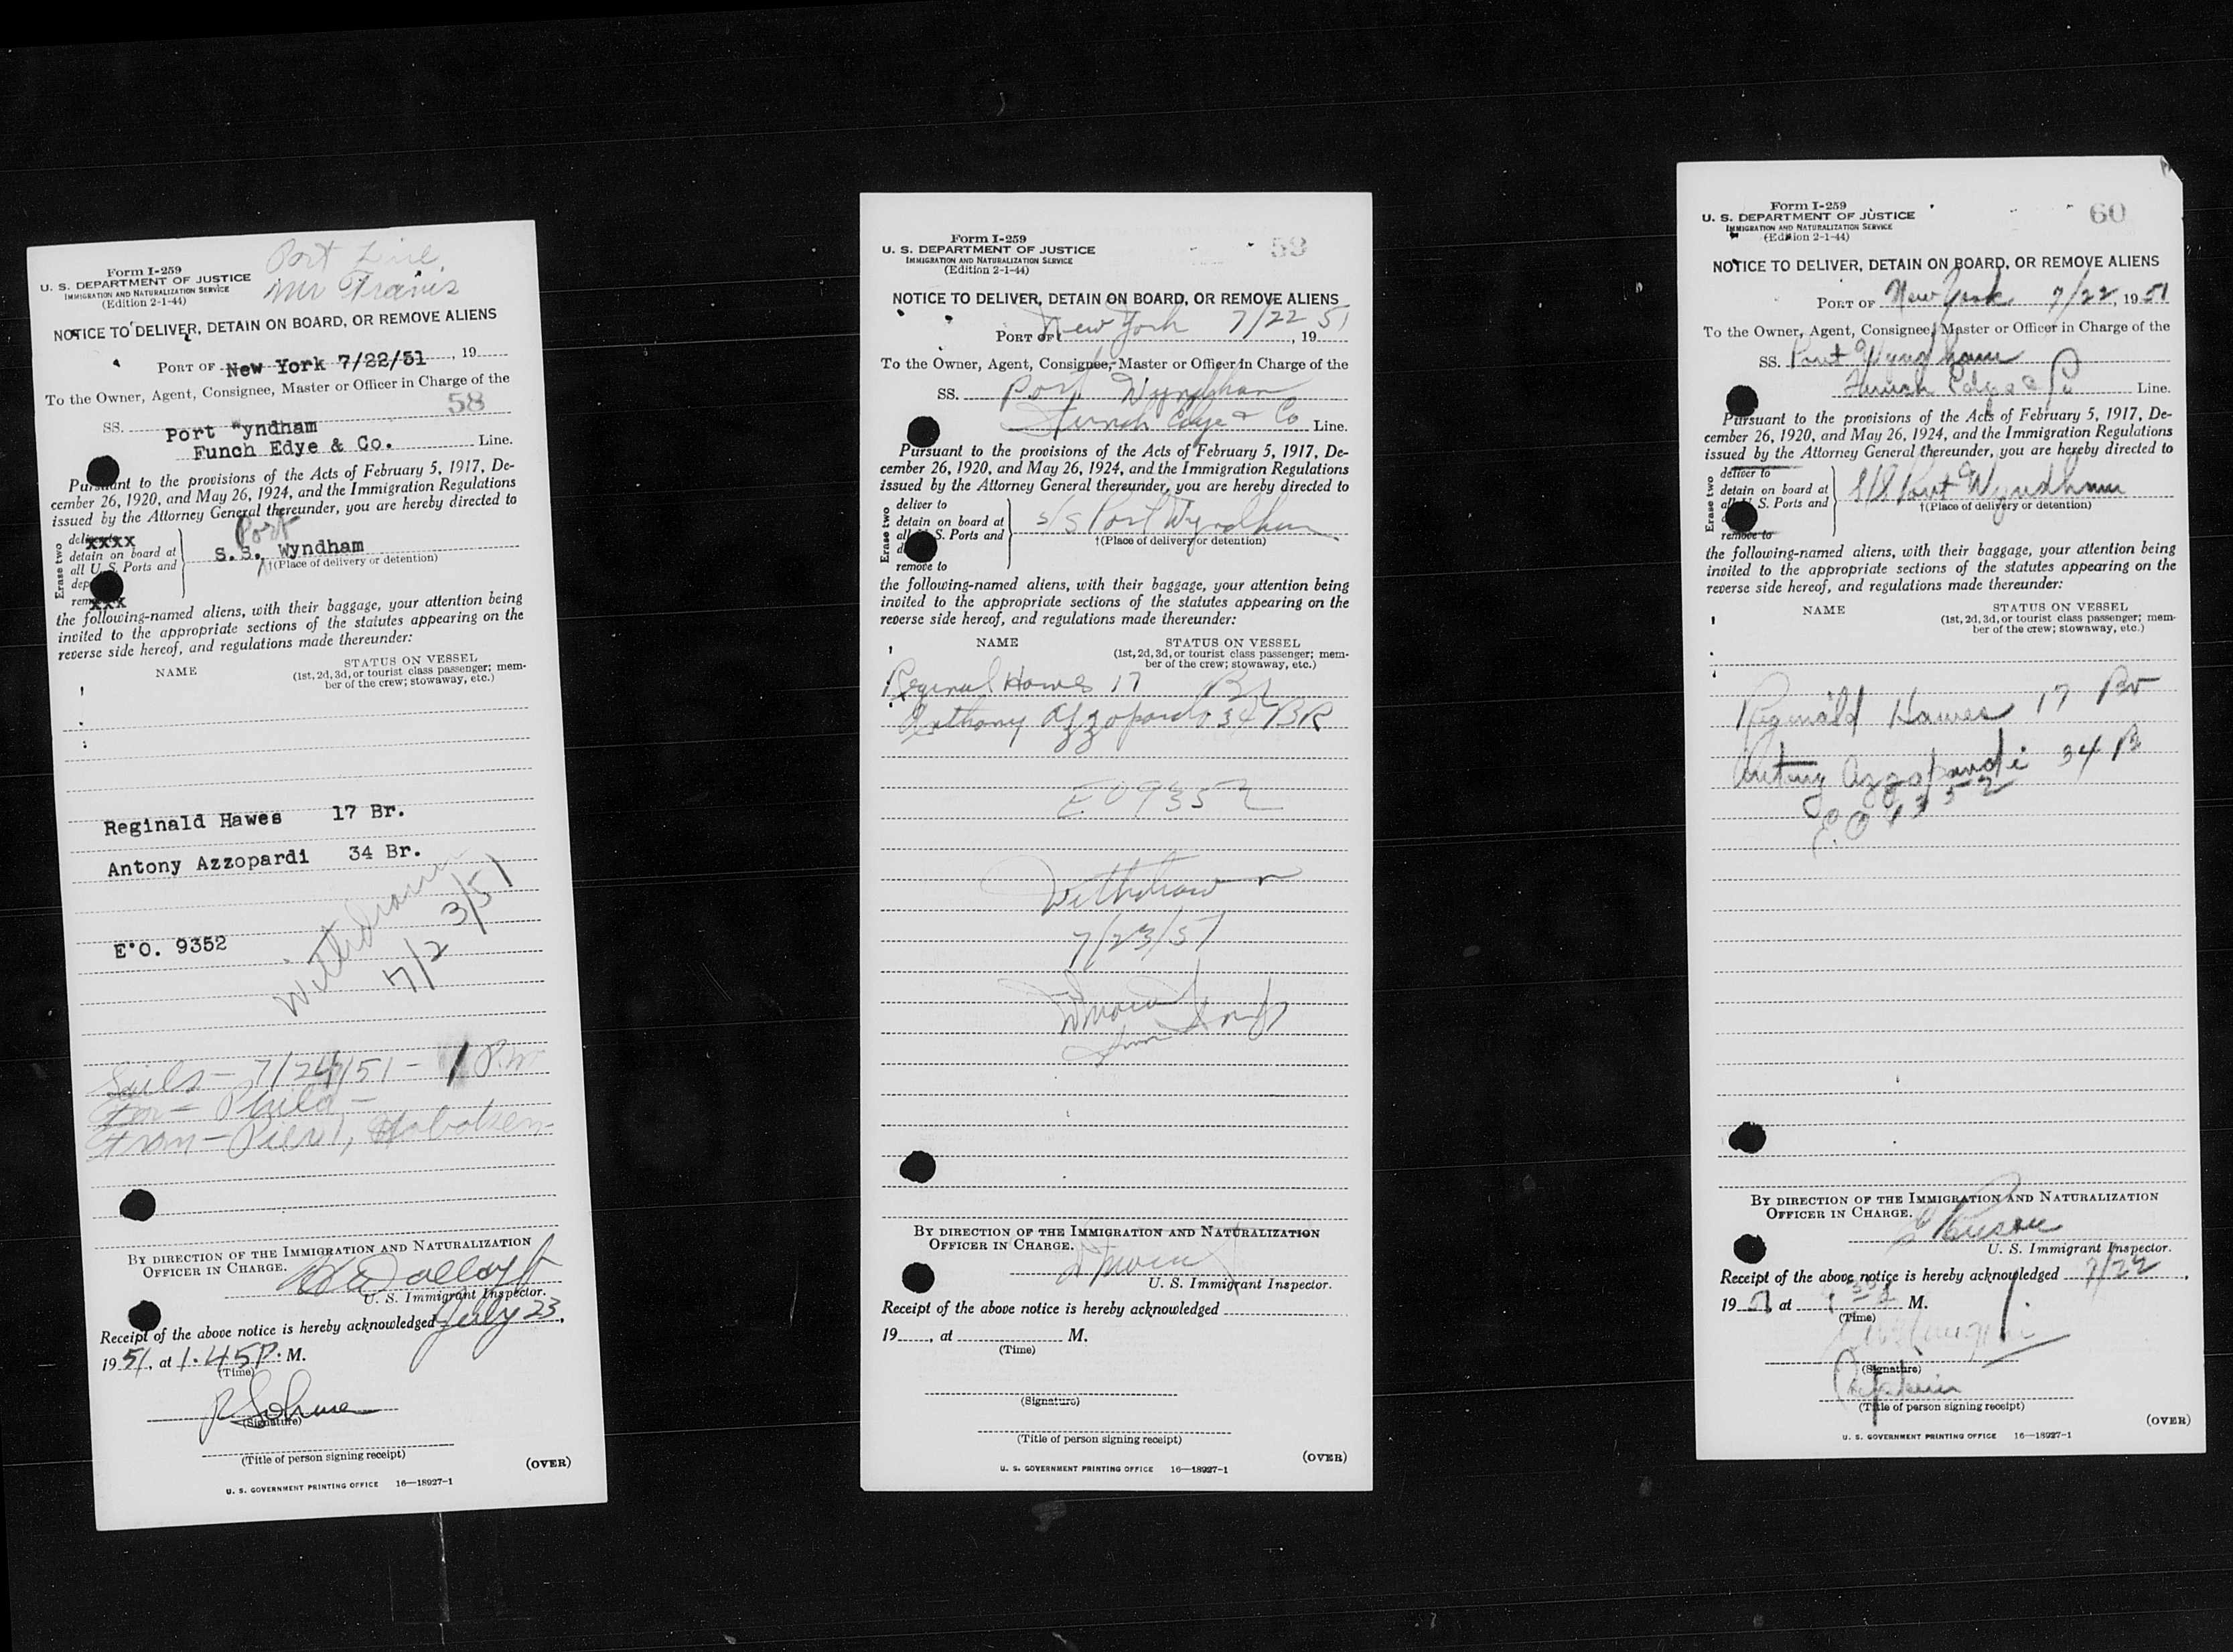 Port Line
Mr Travis
Form I-259
U. S. DEPARTMENT OF JUSTICE
IMMIGRATION AND NATURALIZATION SERVICE
(Edition 2-1-44)
NOTICE TO DELIVER, DETAIN ON BOARD, OR REMOVE ALIENS
PORT OF New York 7/22/51, 19
To the Owner, Agent, Consignee, Master or Officer in Charge of the
58
SS. Port Wyndham
Funch Edye & Co. Line.
Pursuant to the provisions of the Acts of February 5, 1917, De-
cember 26, 1920, and May 26, 1924, and the Immigration Regulations
issued by the Attorney General thereunder, you are hereby directed to
Erase two
xxxx
detain on board at
all U. S. Ports and
Port
S.S. Wyndham
†(Place of delivery or detention)
xxx
the following-named aliens, with their baggage, your attention being
invited to the appropriate sections of the statutes appearing on the
reverse side hereof, and regulations made thereunder:
NAME
STATUS ON VESSEL
(1st, 2d, 3d, or tourist class passenger; mem-
ber of the crew; stowaway, etc.)
Reginald Hawes 17 Br.
Antony Azzopardi 34 Br.
E.O. 9352
Withdrawn
7/23/51
Sails - 7/24/51 - 1 P.M
For - Phila -
From - Pier 1, Hoboken
BY DIRECTION OF THE IMMIGRATION AND NATURALIZATION
OFFICER IN CHARGE.
U. S. Immigrant Inspector.
Receipt of the above notice is hereby acknowledged July 23,
1951, at 1.45 P. M.
(Time)
(Signature)
(Title of person signing receipt)
(OVER)
U. S. GOVERNMENT PRINTING OFFICE 16—18927-1
Form I-259
U. S. DEPARTMENT OF JUSTICE
IMMIGRATION AND NATURALIZATION SERVICE
(Edition 2-1-44)
59
NOTICE TO DELIVER, DETAIN ON BOARD, OR REMOVE ALIENS
PORT OF New York 7/22 51, 19
To the Owner, Agent, Consignee, Master or Officer in Charge of the
SS. Port Wyndham
Funch Edye & Co Line.
Pursuant to the provisions of the Acts of February 5, 1917, De-
cember 26, 1920, and May 26, 1924, and the Immigration Regulations
issued by the Attorney General thereunder, you are hereby directed to
Erase two
deliver to
detain on board at
all U. S. Ports and
remove to
s/s Port Wyndham
†(Place of delivery or detention)
the following-named aliens, with their baggage, your attention being
invited to the appropriate sections of the statutes appearing on the
reverse side hereof, and regulations made thereunder:
NAME
STATUS ON VESSEL
(1st, 2d, 3d, or tourist class passenger; mem-
ber of the crew; stowaway, etc.)
Reginal Hawes 17 Br
Anthony Azzopardo 34 BR
EO 9352
Withdrawn
7/23/51
BY DIRECTION OF THE IMMIGRATION AND NATURALIZATION
OFFICER IN CHARGE.
U. S. Immigrant Inspector.
Receipt of the above notice is hereby acknowledged
19 , at M.
(Time)
(Signature)
(Title of person signing receipt)
(OVER)
U. S. GOVERNMENT PRINTING OFFICE 16—18927-1
Form I-259
U. S. DEPARTMENT OF JUSTICE
IMMIGRATION AND NATURALIZATION SERVICE
(Edition 2-1-44)
60
NOTICE TO DELIVER, DETAIN ON BOARD, OR REMOVE ALIENS
PORT OF New York 7/22, 1951
To the Owner, Agent, Consignee, Master or Officer in Charge of the
SS. Port Wyndham
Funch Edye & Co Line.
Pursuant to the provisions of the Acts of February 5, 1917, De-
cember 26, 1920, and May 26, 1924, and the Immigration Regulations
issued by the Attorney General thereunder, you are hereby directed to
Erase two
deliver to
detain on board at
all U. S. Ports and
remove to
S/S Port Wyndham
†(Place of delivery or detention)
the following-named aliens, with their baggage, your attention being
invited to the appropriate sections of the statutes appearing on the
reverse side hereof, and regulations made thereunder:
NAME
STATUS ON VESSEL
(1st, 2d, 3d, or tourist class passenger; mem-
ber of the crew; stowaway, etc.)
Reginald Hawes 17 Br
Antony Azzopardi 34 B
E.O 9352
BY DIRECTION OF THE IMMIGRATION AND NATURALIZATION
OFFICER IN CHARGE.
U. S. Immigrant Inspector.
Receipt of the above notice is hereby acknowledged 7/22,
19 , at M.
(Time)
(Signature)
(Title of person signing receipt)
(OVER)
U. S. GOVERNMENT PRINTING OFFICE 16—18927-1